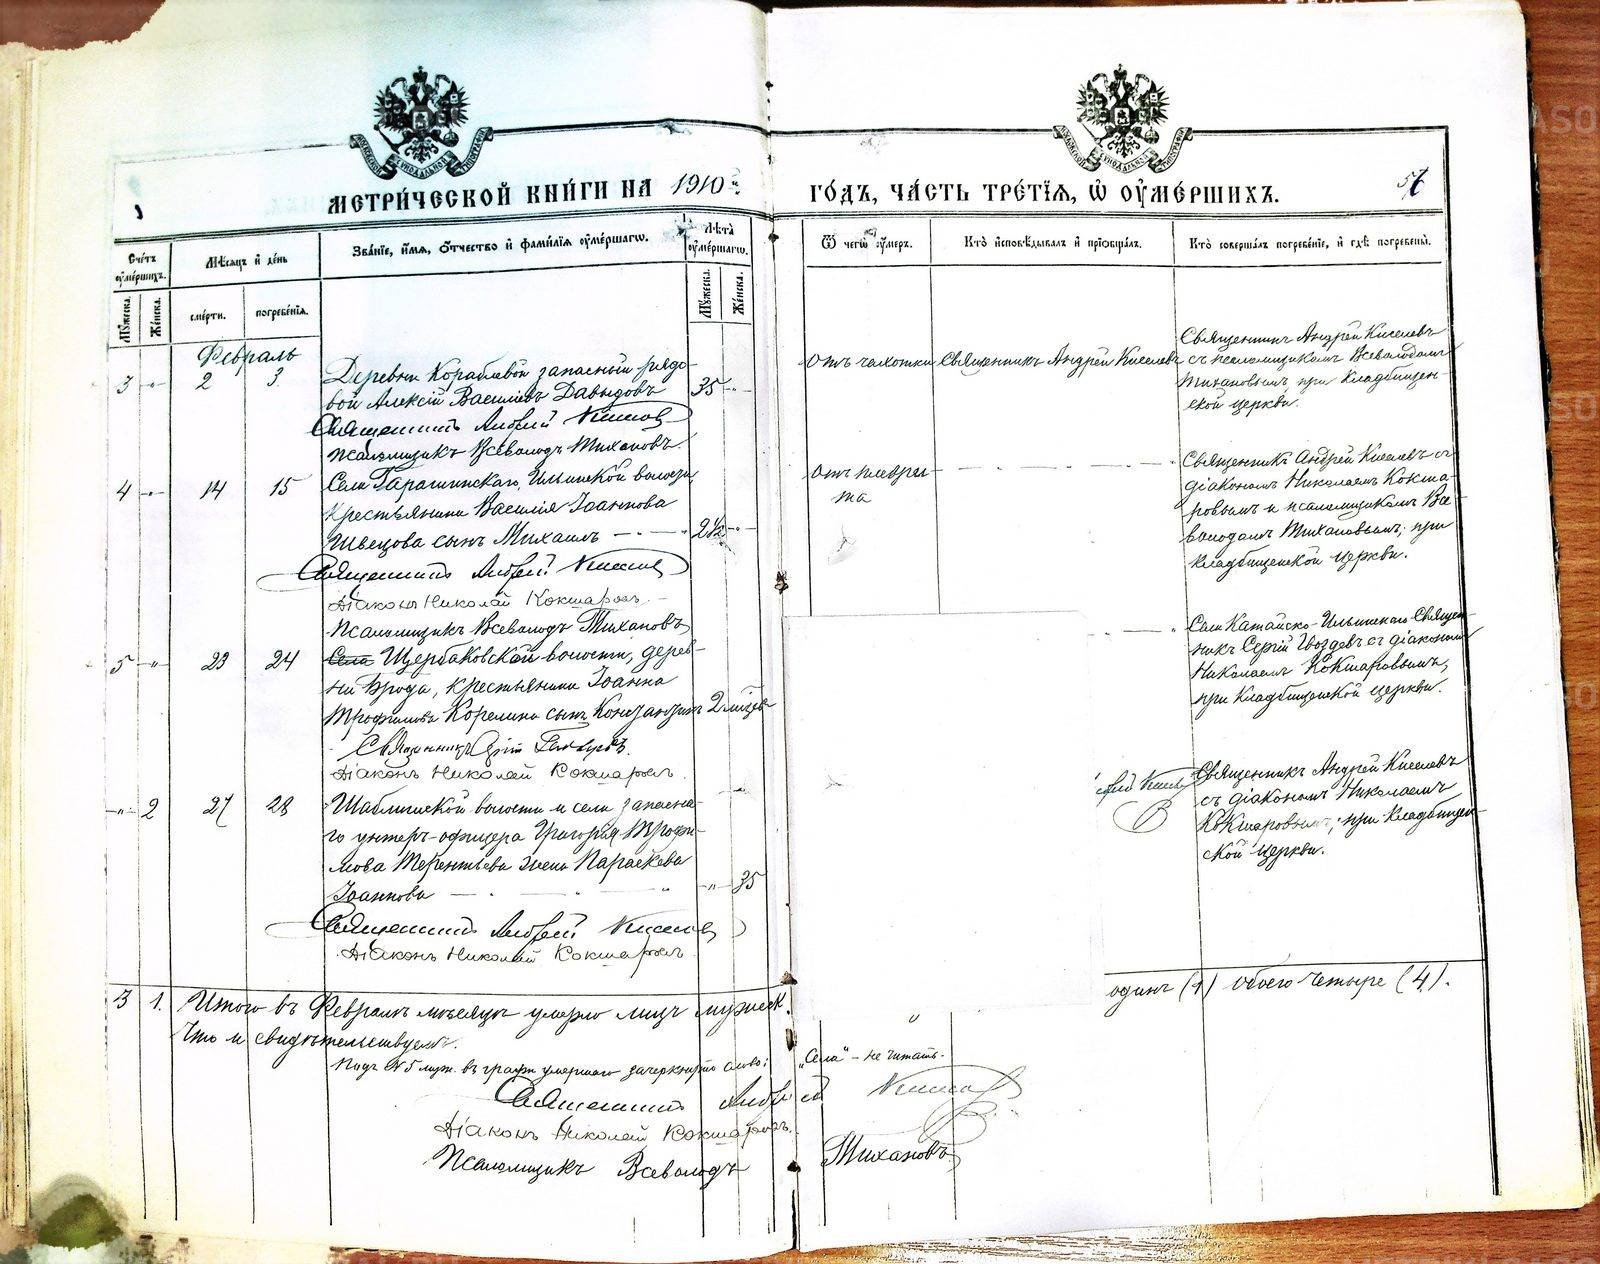 МЕТРИ́ЧЕСКОЙ КНИ́ГИ НА 1910й
ГО́ДЪ, ЧА́СТЬ ТРЕ́ТІѦ, Ѡ ОУМЕ́РШИХЪ.
Сче́тъ оуме́ршихъ.
Мѣ́сѧцъ и де́нь
Зва́ніе, и́мѧ, о́тчество и фами́лїѧ оуме́ршагѡ.
Лѣ́та оуме́ршагѡ.
Ѿ чегѡ̀ оу́меръ.
Кто̀ исповѣ́дывалъ и прїѡбща́лъ.
Кто̀ соверша́лъ погребе́ніе, и гдѣ̀ погребены̀.
Мꙋ́жеска.
Же́нска.
сме́рти.
погребе́нїѧ.
Мꙋ́жеска.
Же́нска.
Февраль
3 -"- 2 3
Деревни Кораблевой запасный рядо-
вой Алексій Василіевъ Давыдовъ 35 -"-
Священникъ Андрей Киселевъ
Псаломщикъ Всеволодъ Тихановъ.
Отъ чахотки
Священникъ Андрей Киселевъ
Священникъ Андрей Киселевъ
съ псаломщикомъ Всеволодомъ
Тихановымъ, при Кладбищен-
ской церкви.
4 -"- 14 15
Села Гарашинскаго, Ильинской волости,
крестьянина Василія Іоаннова
Швецова сынъ Михаилъ 2½ -"-
Священникъ Андрей Киселевъ
Діаконъ Николай Кокшаровъ
Псаломщикъ Всеволодъ Тихановъ
Отъ плеври-
та
Священникъ Андрей Киселевъ съ
діакономъ Николаемъ Кокша-
ровымъ и псаломщикомъ Все-
володомъ Тихановымъ, при
Кладбищенской церкви.
5 -"- 23 24
Села Щербаковской волости, дерев-
ни Брода, крестьянина Іоанна
Трофимова Корелина сынъ Константинъ 2 мѣсяц.
Священникъ Сергій Гвоздевъ.
Діаконъ Николай Кокшаровъ.
Села Катайско-Ильинскаго Священ-
никъ Сергій Гвоздевъ съ діакономъ
Николаемъ Кокшаровымъ,
при Кладбищенской церкви.
-"- 2 27 28
Шаблишской волости и села запасна-
го унтеръ-офицера Григорія Трофи-
мова Терентьева жена Параскева
Іоаннова -"- 35
Священникъ Андрей Киселевъ
Діаконъ Николай Кокшаровъ
Священникъ Андрей Киселевъ
съ діакономъ Николаемъ
Кокшаровымъ, при Кладбищен-
ской церкви.
3 1. Итого въ Февралѣ мѣсяцѣ умерло лицъ мужеск.
одинъ (1) обоего четыре (4).
Что и свидѣтельствуемъ.
Подъ № 5 муж. въ графѣ умершаго зачеркнуто слово: „Села“ - не читать.
Священникъ Андрей Киселевъ
Діаконъ Николай Кокшаровъ.
Псаломщикъ Всеволодъ Тихановъ